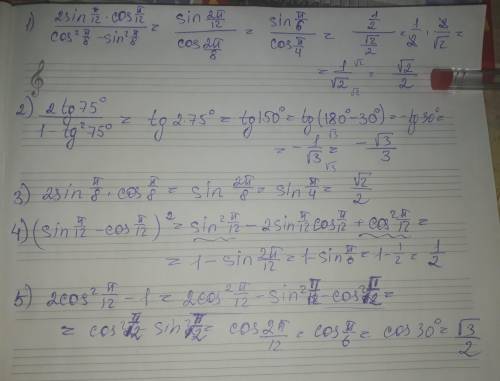 1) (2sin π/12 · cos π/12)/(cos² π/8 − sin² π/8) = (sin 2π/12)/(cos 2π/8) = (sin π/6)/(cos π/4) = (1/2)/(√2/2) = 1/2 · 2/√2 =
= 1/√2 = √2/2
2) (2 tg 75°)/(1 − tg² 75°) = tg 2·75° = tg 150° = tg (180° − 30°) = −tg 30° =
= − 1/√3 = − √3/3
3) 2sin π/8 · cos π/8 = sin 2π/8 = sin π/4 = √2/2
4) (sin π/12 − cos π/12)² = sin² π/12 − 2sin π/12 cos π/12 + cos² π/12 =
= 1 − sin 2π/12 = 1 − sin π/6 = 1 − 1/2 = 1/2
5) 2cos² π/12 − 1 = 2cos² π/12 − sin² π/12 − cos² π/12 =
= cos² π/12 − sin² π/12 = cos 2π/12 = cos π/6 = cos 30° = √3/2